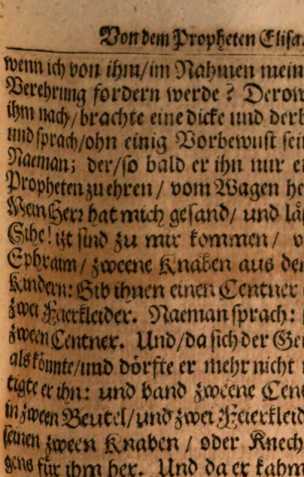 Von dem Propheten Elisa
wenn ich von ihm/im Nahmen mein
Verehrung fordern werde? Derow
ihm nach/brachte eine dicke und derb
und sprach/ohn einig Vorbewust sei
Naeman; der/so bald er ihn nur e
Propheten zu ehren/ vom Wagen he
Mein Herr hat mich gesand/ und lä
Sihe! itzt sind zu mir kommen/ v
Ephraim/ zweene Knaben aus de
Kindern: Gib ihnen einen Centner
zwei Feierkleider. Naeman sprach:
zween Centner. Und/da sich der Ge
als könnte/und dörfte er mehr nicht
tigte er ihn: und band zweene Cen
in zween Beutel/und zwei Feierkleid
seinen zween Knaben/ oder Knech
gens für ihm her. Und da er kahm